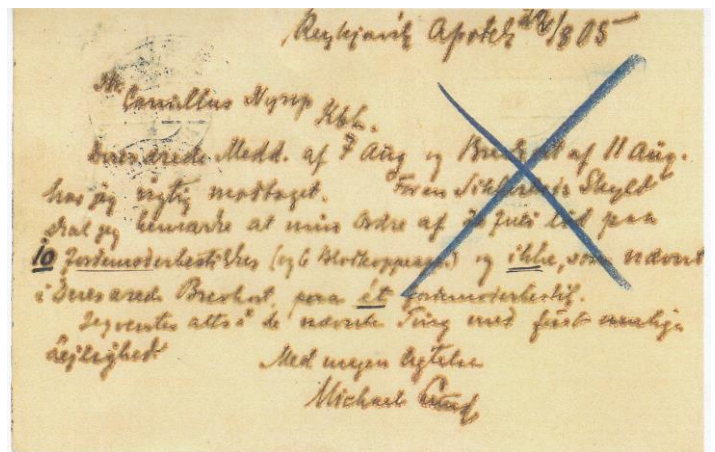 Reykjavik Apothek 22/8 05
Hr. Camillus Nyrop Kbh.
Deres ærede Medd. af 7 Aug og Brevkort af 11 Aug.
har jeg rigtig modtaget. For en Sikkerheds Skyld
skal jeg bemærke at min Ordre af Juli lød paa
10 Jordemoderbestikker (og 6 Blodkoppeapp.) og ikke, som nævnt
i Deres ærede Brevkort, paa ét Jordemoderbestik.
Jeg ventes altså de nævnte Ting med først mulige
Lejlighed.
Med megen Agtelse
Michael Lund